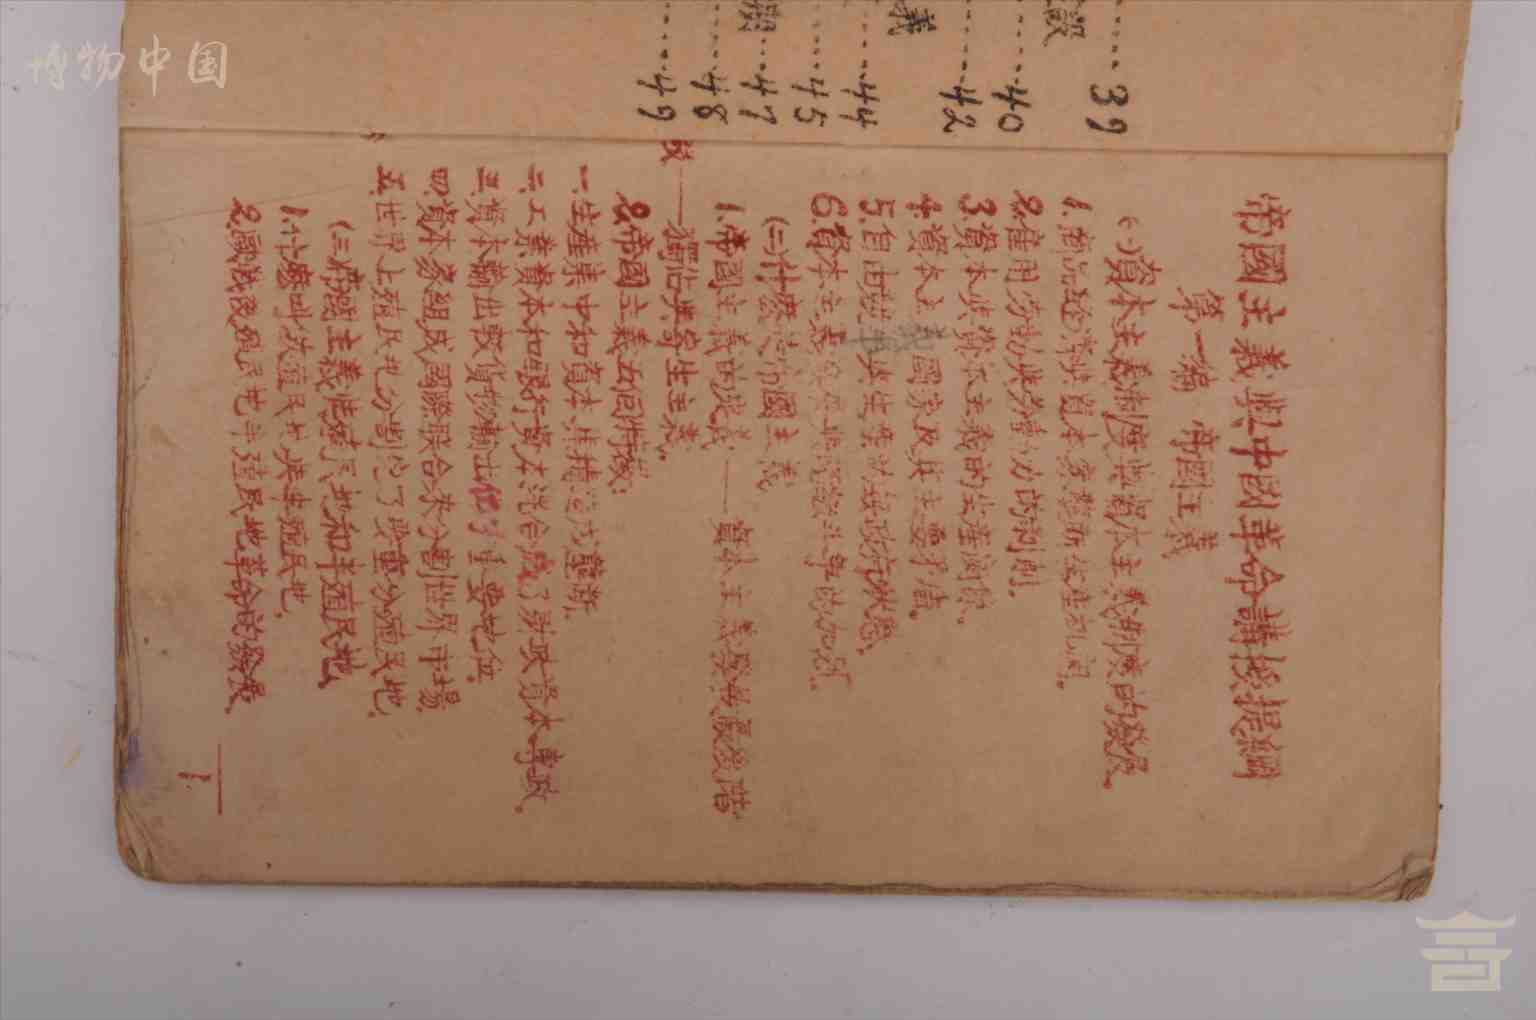 博物中国
設……39
……40
義……42
……44
……45
……47
……48
……49
帝國主義與中國革命講授提綱
第一編 帝國主義
(一)資本主義制度與資本主義制度的發展.
1.商品經濟與資本家壟斷生產机関.
2.雇用勞動與勞動力的剝削.
3.資本與資本主義的生產関係.
4.資本主義國家及其主要矛盾.
5.自由競爭與生產無政府狀態.
6.資本主義 鬥爭的加深.
(二)什麽是帝國主義
1.帝國主義的定義——資本主義發展最後階
段——獨佔與寄生主義。
2.帝國主義五個特徵:
一.生產集中和資本集積造成壟斷.
二.工業資本和銀行資本混合成了財政資本專政.
三.資本輸出較貨物輸出佔了重要地位.
四.資本家組成國際聯合來分割世界市場.
五.世界上殖民地分割完了與重分殖民地.
(三)帝國主義與殖民地和半殖民地.
1.什麽叫做殖民地與半殖民地.
2.歐戰後殖民地半殖民地革命的發展.
1